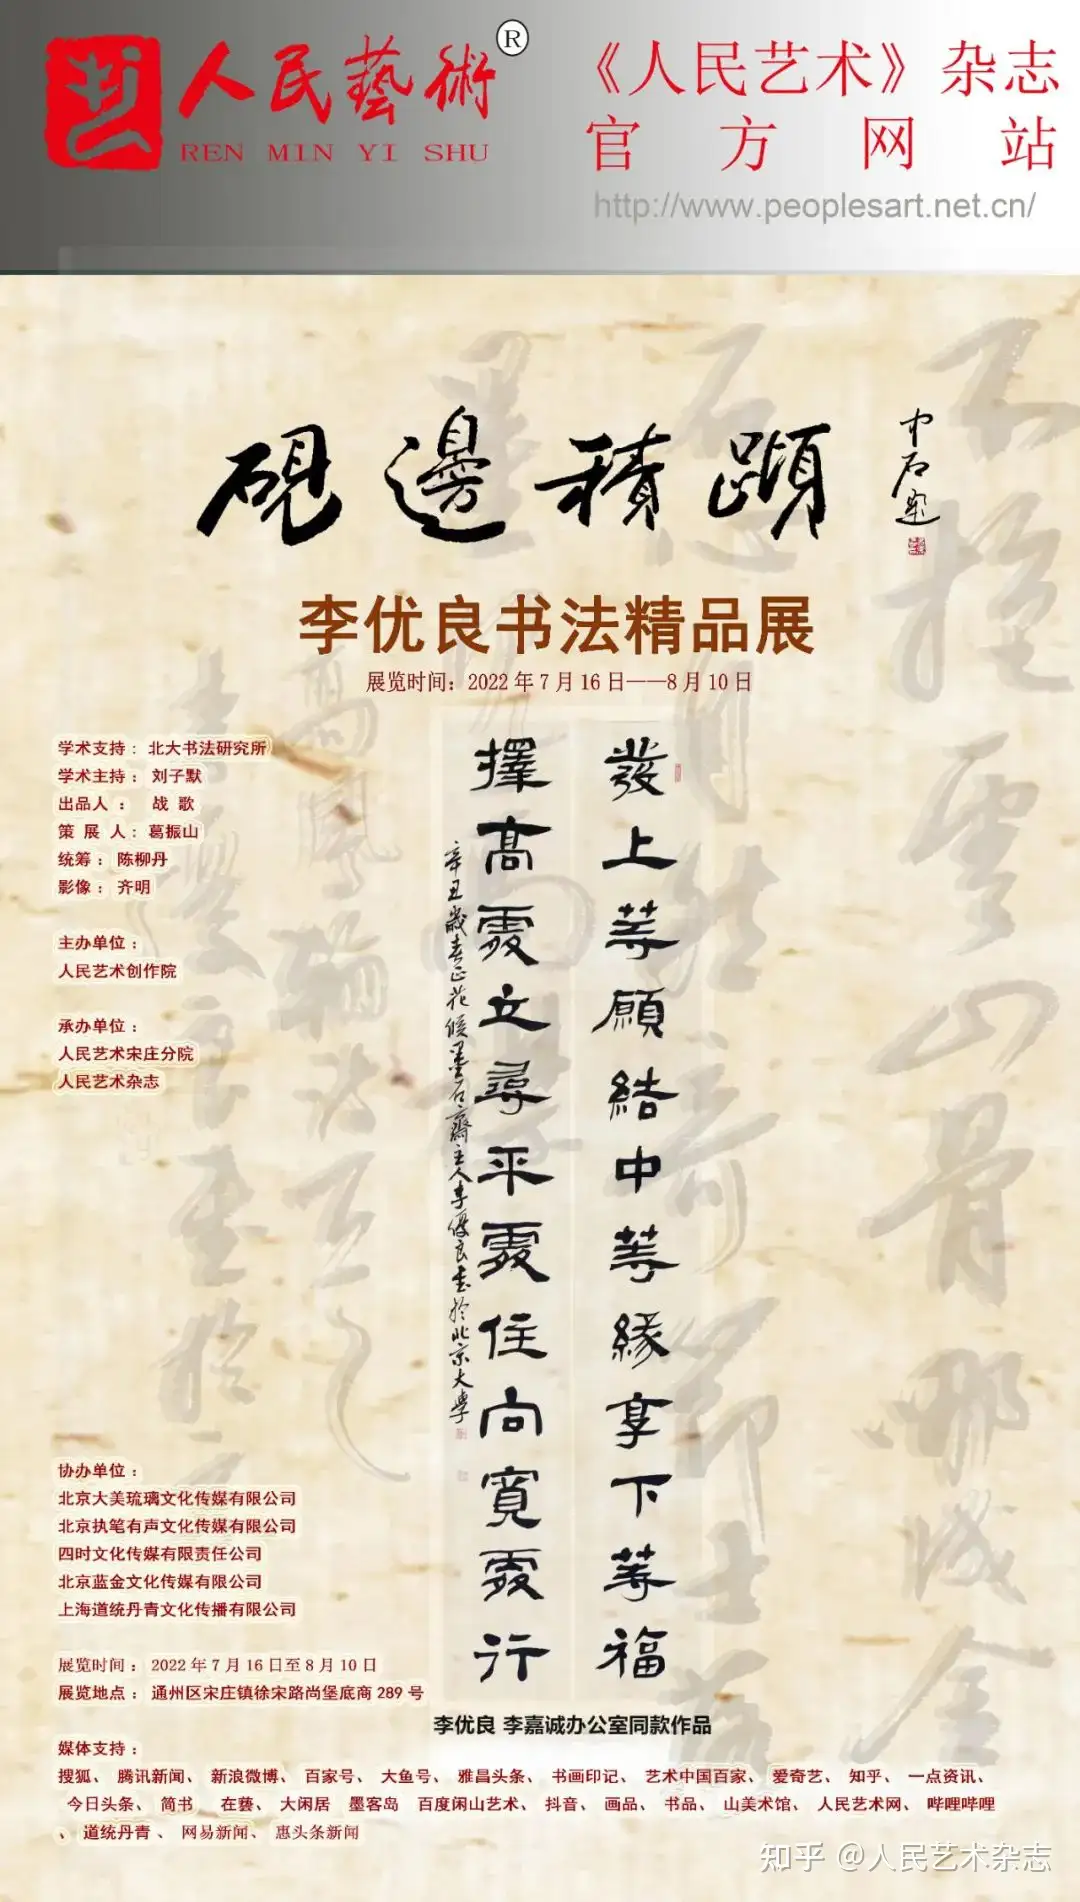 人民藝術®
REN MIN YI SHU
《人民艺术》杂志
官方网站
http://www.peoplesart.net.cn/
硯邊積蹞
中石題
李优良书法精品展
展览时间：2022年7月16日——8月10日
学术支持： 北大书法研究所
学术主持： 刘子默
出品人 ： 战 歌
策 展 人： 葛振山
统筹： 陈柳丹
影像： 齐明
主办单位：
人民艺术创作院
承办单位：
人民艺术宋庄分院
人民艺术杂志
發上等願結中等緣享下等福
擇高處立尋平處住向寬處行
辛丑歲春正花候墨石齋主人李優良書於北京大學
协办单位：
北京大美琉璃文化传媒有限公司
北京执笔有声文化传媒有限公司
四时文化传媒有限责任公司
北京蓝金文化传媒有限公司
上海道统丹青文化传播有限公司
展览时间： 2022年7月16日至8月10日
展览地点： 通州区宋庄镇徐宋路尚堡底商289号
李优良 李嘉诚办公室同款作品
媒体支持：
搜狐、 腾讯新闻、 新浪微博、 百家号、 大鱼号、 雅昌头条、 书画印记、 艺术中国百家、 爱奇艺、 知乎、 一点资讯、
今日头条、 简书 在藝、 大闲居 墨客岛 百度闲山艺术、 抖音、 画品、 书品、 山美术馆、 人民艺术网、 哔哩哔哩
、 道统丹青 、 网易新闻、 惠头条新闻
知乎 @人民艺术杂志